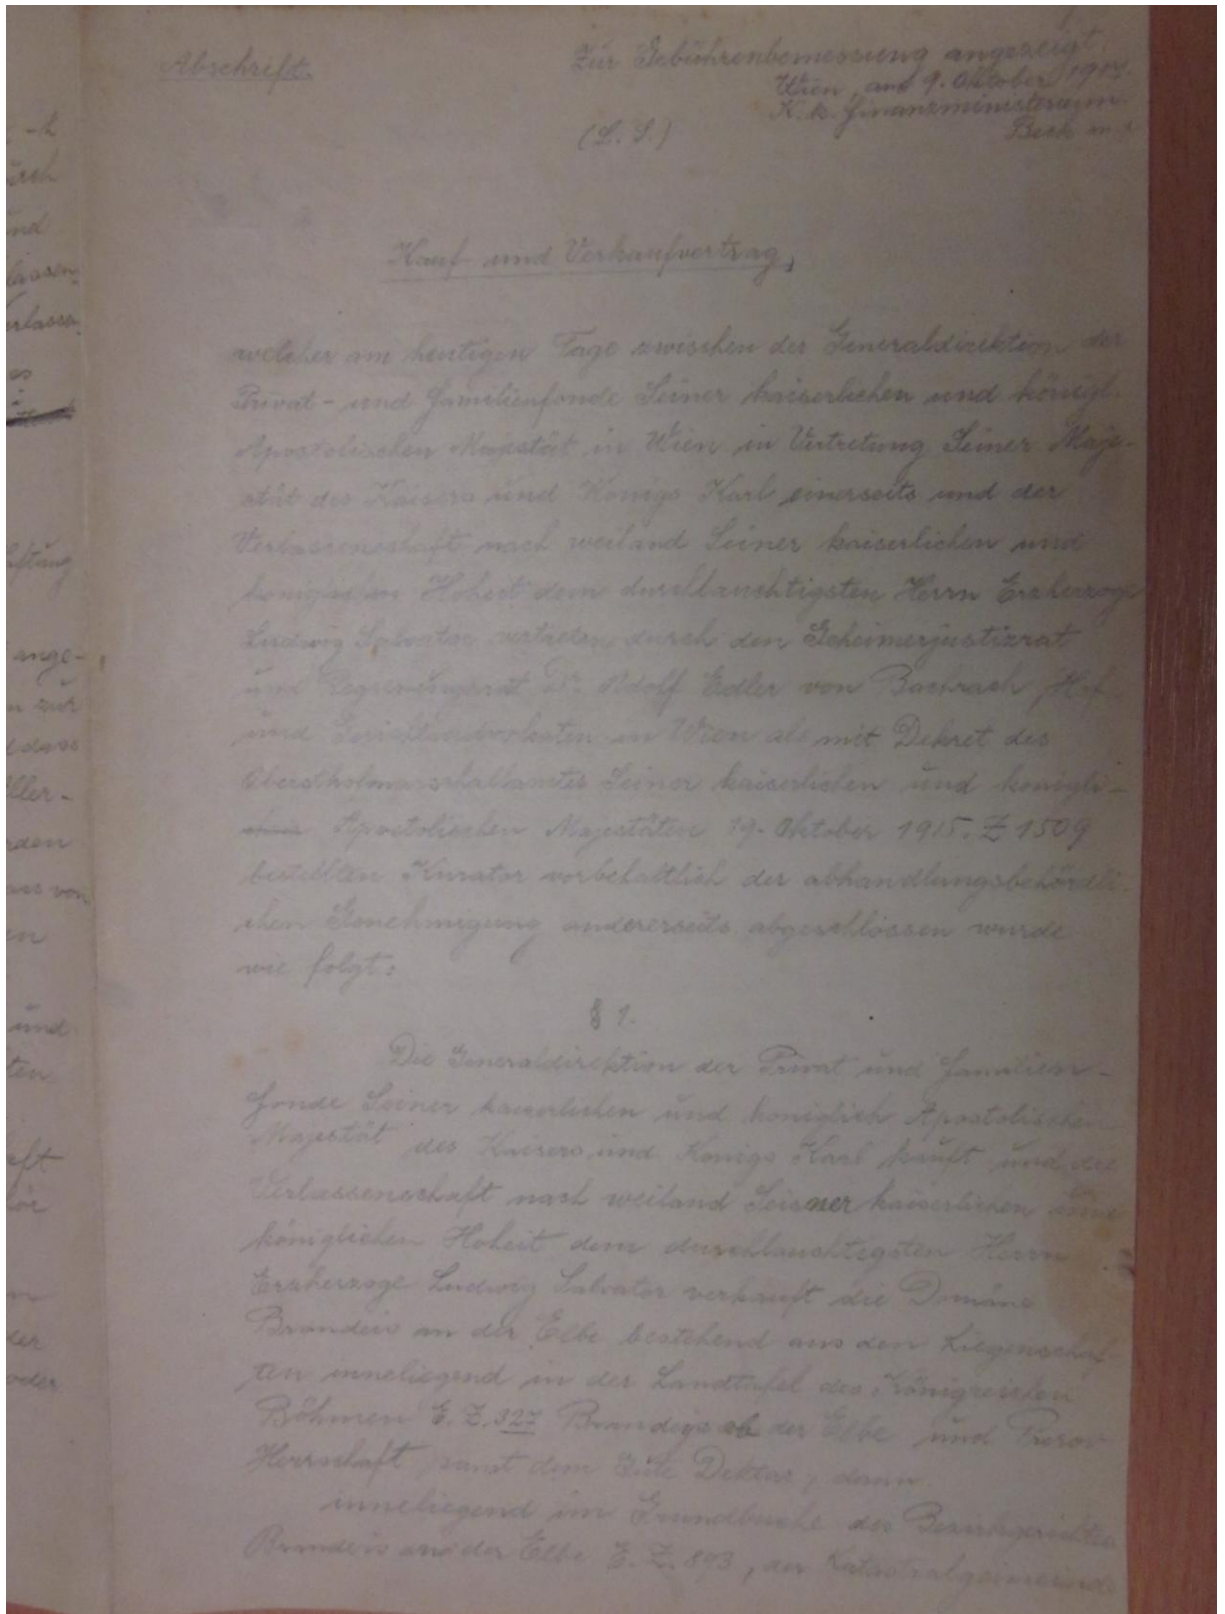 Abschrift.
Zur Gebührenbemessung angezeigt.
Wien, am 9. Oktober 1917.
K. k. Finanzministerium
Beck m. p.
(L. S.)
Kauf und Verkaufvertrag,
welcher am heutigen Tage zwischen der Generaldirektion der
Privat- und Familienfonde Seiner kaiserlichen und königl.
Apostolischen Majestät in Wien in Vertretung Seiner Maje-
stät des Kaisers und Königs Karl einerseits und der
Verlassenschaft nach weiland Seiner kaiserlichen und
königlichen Hoheit dem durchlauchtigsten Herrn Erzherzoge
Ludwig Salvator vertreten durch den Geheimerjustizrat
und Regierungsrat Dr. Adolf Edler von Bachrach Hof
und Gerichtsadvokaten in Wien als mit Dekret des
Obersthofmarschallamtes Seiner kaiserlichen und königli-
Apostolischen Majestäten 19. Oktober 1915. Z 1509
bestellten Kurator vorbehaltlich der abhandlungsbehördli-
chen Genehmigung andererseits abgeschlossen wurde
wie folgt:
§ 1.
Die Generaldirektion der Privat und Familien-
fonde Seiner kaiserlichen und königlich Apostolischen
Majestät des Kaisers und Königs Karl kauft und die
Verlassenschaft nach weiland Seisner kaiserlichen und
königlichen Hoheit dem durchlauchtigsten Herrn
Erzherzoge Ludwig Salvator verkauft die Domäne
Brandeis an der Elbe bestehend aus den Liegenschaf-
ten inneliegend in der Landtafel des Königreichen
Böhmen E. Z. 327 Brandeis ob der Elbe und Prerov
Herrschaft samt dem Gute Dektar, dann
inneliegend im Grundbuche des Bezirksgerichtes
Brandeis an der Elbe E. Z. 893, der Katastralgemeinde